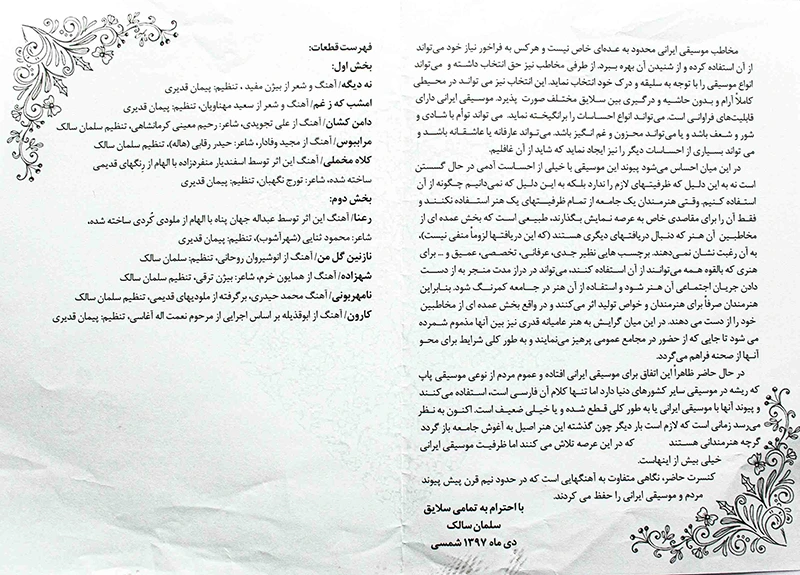 مخاطب موسیقی ایرانی محدود به عده‌ای خاص نیست و هرکس به فراخور نیاز خود می‌تواند
از آن استفاده کرده و از شنیدن آن بهره ببرد. از طرفی مخاطب نیز حق انتخاب داشته و می‌تواند
انواع موسیقی را با توجه به سلیقه و درک خود انتخاب نماید. این انتخاب نیز می تواند در محیطی
کاملاً آرام و بدون حاشیه و درگیری بین سلایق مختلف صورت پذیرد. موسیقی ایرانی دارای
قابلیت‌های فراوانی است. می‌تواند انواع احساسات را برانگیخته نماید. می تواند توأم با شادی و
شور و شعف باشد و یا می‌تواند محزون و غم انگیز باشد. می‌تواند عارفانه یا عاشقانه باشد و
می تواند بسیاری از احساسات دیگر را نیز ایجاد نماید که شاید از آن غافلیم.
در این میان احساس می‌شود پیوند این موسیقی با خیلی از احساست آدمی در حال گسستن
است نه به این دلیل که ظرفیتهای لازم را ندارد بلکه به این دلیل که نمی‌دانیم چگونه از آن
استفاده کنیم. وقتی هنرمندان یک جامعه از تمام ظرفیتهای یک هنر استفاده نکنند و
فقط آن را برای مقاصدی خاص به عرصه نمایش بگذارند، طبیعی است که بخش عمده ای از
مخاطبین آن هنر که دنبال دریافتهای دیگری هستند (که این دریافتها لزوماً منفی نیست)،
به آن رغبت نشان نمی‌دهند. برچسب هایی نظیر جدی، عرفانی، تخصصی، عمیق و ... برای
هنری که بالقوه همه می‌توانند از آن استفاده کنند، می‌تواند در دراز مدت منجر به از دست
دادن جریان اجتماعی آن هنر شود و استفاده از آن هنر در جامعه کمرنگ شود. بنابراین
هنرمندان صرفاً برای هنرمندان و خواص تولید اثر می‌کنند و در واقع بخش عمده ای از مخاطبین
خود را از دست می دهند. در این میان گرایش به هنر عامیانه قدری نیز بین آنها مذموم شمرده
می شود تا جایی که از حضور در مجامع عمومی پرهیز می‌نمایند و به طور کلی شرایط برای محو
آنها از صحنه فراهم می‌گردد.
در حال حاضر ظاهراً این اتفاق برای موسیقی ایرانی افتاده و عموم مردم از نوعی موسیقی پاپ
که ریشه در موسیقی سایر کشورهای دنیا دارد اما تنها کلام آن فارسی است، استفاده می‌کنند
و پیوند آنها با موسیقی ایرانی یا به طور کلی قطع شده و یا خیلی ضعیف است. اکنون به نظر
می‌رسد زمانی است که لازم است بار دیگر چون گذشته این هنر اصیل به آغوش جامعه باز گردد
گرچه هنرمندانی هستند که در این عرصه تلاش می کنند اما ظرفیت موسیقی ایرانی
خیلی بیش از اینهاست.
کنسرت حاضر، نگاهی متفاوت به آهنگهایی است که در حدود نیم قرن پیش پیوند
مردم و موسیقی ایرانی را حفظ می کردند.
با احترام به تمامی سلایق
سلمان سالک
دی ماه ۱۳۹۷ شمسی
فهرست قطعات:
بخش اول:
نه دیگه/ آهنگ و شعر از بیژن مفید ، تنظیم: پیمان قدیری
امشب که ز غم/ آهنگ و شعر از سعید مهناویان، تنظیم: پیمان قدیری
دامن کشان/ آهنگ از علی تجویدی، شاعر: رحیم معینی کرمانشاهی، تنظیم سلمان سالک
مرابیوس/ آهنگ از مجید وفادار، شاعر: حیدر رقابی (هاله)، تنظیم سلمان سالک
کلاه مخملی/ آهنگ این اثر توسط اسفندیار منفردزاده با الهام از رنگهای قدیمی
ساخته شده، شاعر: تورج نگهبان، تنظیم: پیمان قدیری
بخش دوم:
رعنا/ آهنگ این اثر توسط عبداله جهان پناه با الهام از ملودی کُردی ساخته شده،
شاعر: محمود ثنایی (شهرآشوب)، تنظیم: پیمان قدیری
نازنین گل من/ آهنگ از انوشیروان روحانی، تنظیم: سلمان سالک
شهزاده/ آهنگ از همایون خرم، شاعر: بیژن ترقی، تنظیم سلمان سالک
نامهربونی/ آهنگ محمد حیدری، برگرفته از ملودیهای قدیمی، تنظیم سلمان سالک
کارون/ آهنگ از ابوقذیله بر اساس اجرایی از مرحوم نعمت اله آغاسی، تنظیم: پیمان قدیری